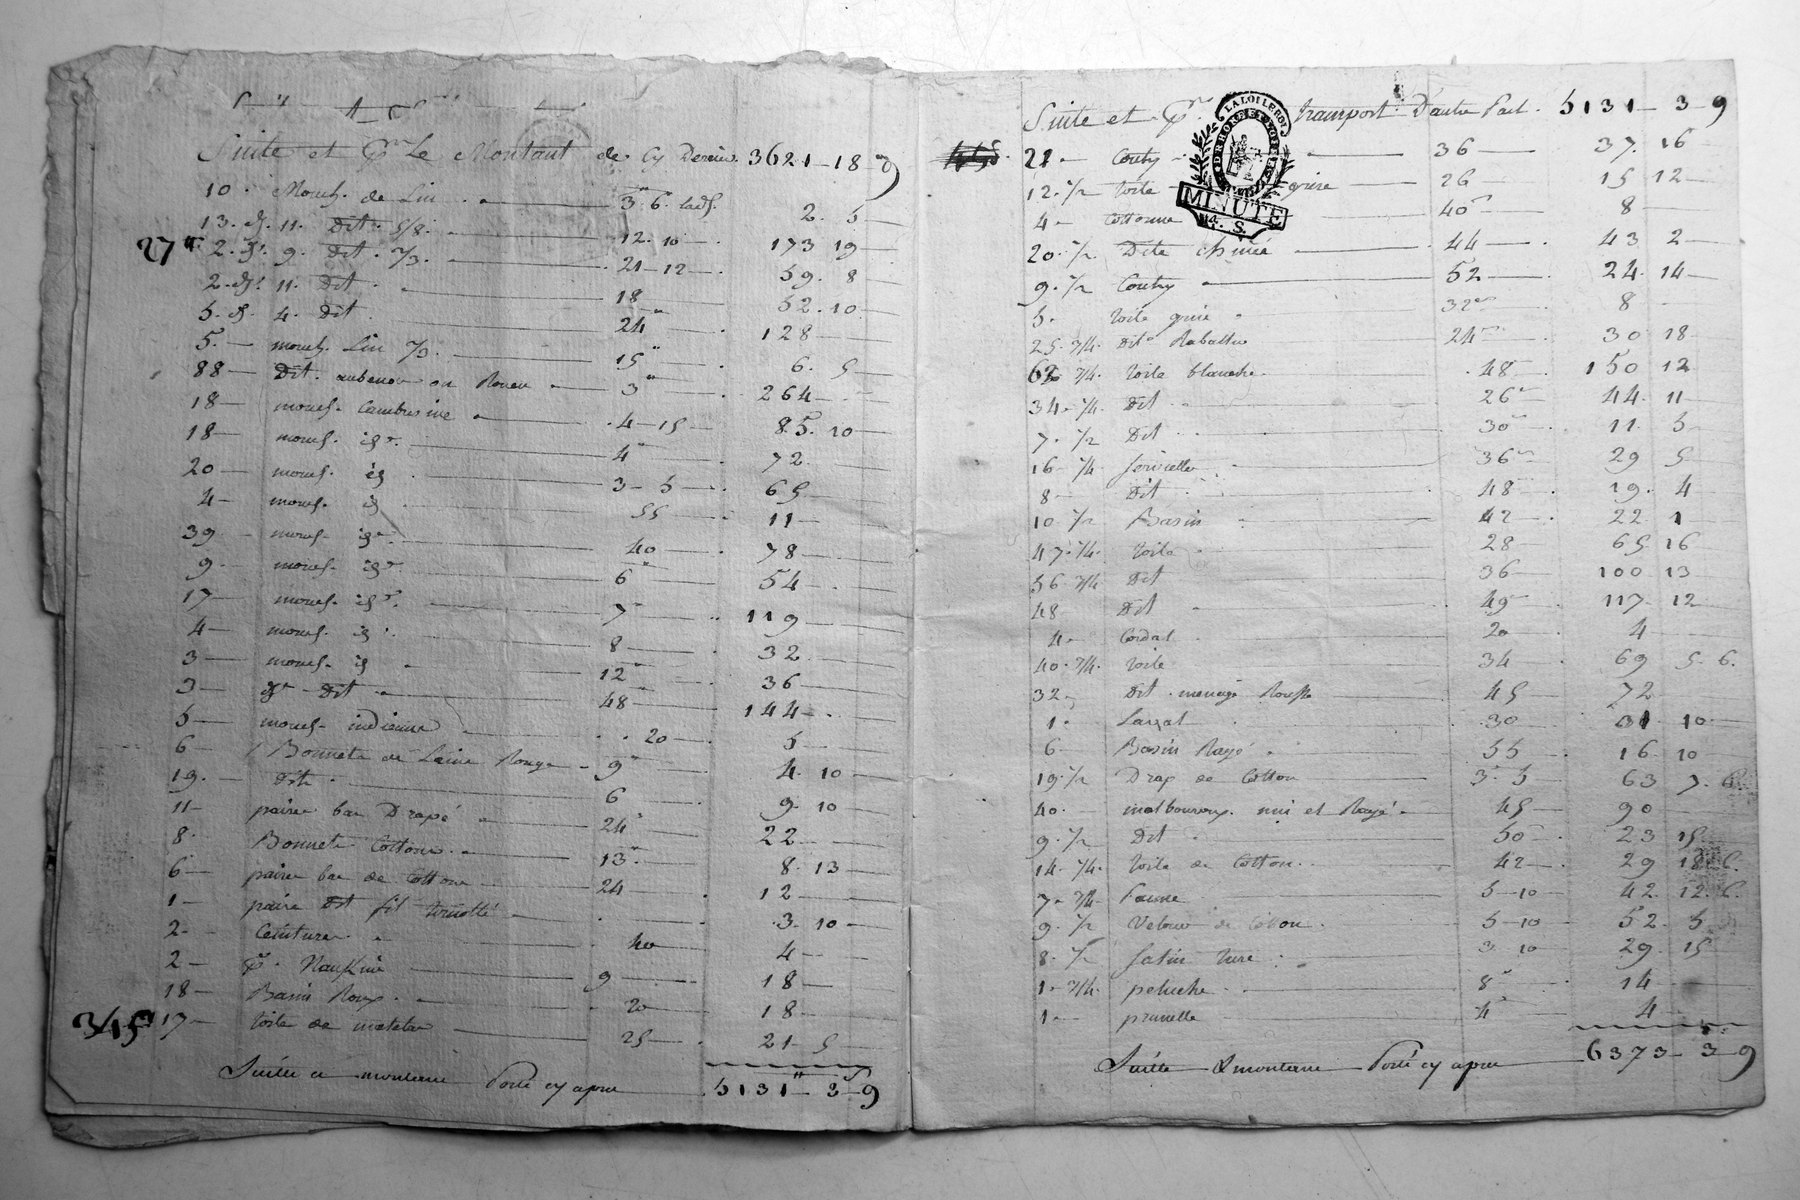 Suite et Pr Le Montant de Cy Derier 3621 - 18 - 9
10 - Mouch. de Lin - 3. 6. la ds. 2. 5
13. ds. 11. Dit. 5/8. 12. 10 173 19
27 2. ds. 9. Dit. 7/3. 21 - 12 59. 8
2. ds. 11. Dit 18 52. 10
5. ds. 4. Dit 24 128
5. mouch. Lin 7/3. 15 6. 5
88 Dit. ou Rouen 3 264
18 mouch. Cambresine 4 - 15 85. 10
18 mouch. 4 72
20 mouch. 3 - 5 65
4 mouch. 55 11
39 mouch. 40 78
9 mouch. 6 54
17 mouch. 7 119
4 mouch. 8 32
3 mouch. 12 36
3 Dit 48 144
5 mouch. indienne 20 5
6 Bonnets de Laine Rouge 9 4. 10
19. Dit 6 9. 10
11 paire bas Drapé 24 22
8. Bonnets Cottons 13 8. 13
6 paire bas de Cotton 24 12
1 paire Dit fil 3. 10
2 Ceinture 40 4
2 Pr. Nankine 9 18
18 Basin Roux 20 18
345 17 Toile de matelas 25 21 - 5
Suitte a monterre Porté cy apres 5131 - 3 - 9
Suite et Pr. transport D'autre Part. 5131 - 3 - 9
LA LOI LE ROI
MINUTE
4. S.
21 - Couty 36 37. 16
12. 1/2 Toile grise 26 15 12
4 - Cottonne 40 8
20. 1/2 Dite chinée 44 43 2
9. 1/2 Couty 52 24. 14
5. Toile grise 32 8
25. 3/4. Dite Rabattue 24 30 18
3/4. Toile blanche 48 150 12
34. 1/4. Dit 26 44. 11
7. 1/2 Dit 30 11. 5
16. 1/4. Serviette 36 29 5
8 Dit 48 19. 4
10. 1/2 Basin 42 22 1
47. 1/4. Toile 28 65 16
56. 3/4 Dit 36 100 13
48 Dit 49 117. 12
4. Cordat 20 4
40. 3/4. Toile 34 69 5. 6.
32 Dit. menage 45 72
1. 30 31 10
6 Basin Rayé 55 16. 10
19. 1/2 Drap de Cotton 3. 5 63 7. 6.
40. malbouroux. uni et Rayé 45 90
9. 1/2 Dit 50 23 15
14. 1/4. Toile de Cotton 42 29 18 6.
7. 3/4 Panne 5 - 10 42. 12. 6.
9. 1/2 Velour de Coton 5 - 10 52. 5
8. 1/2 Satin turc 3. 10 29. 15
1. 3/4. peluche 8 14
1. prunelle 4 4
Suitte & monterre Porté cy apres 6373 - 3 - 9